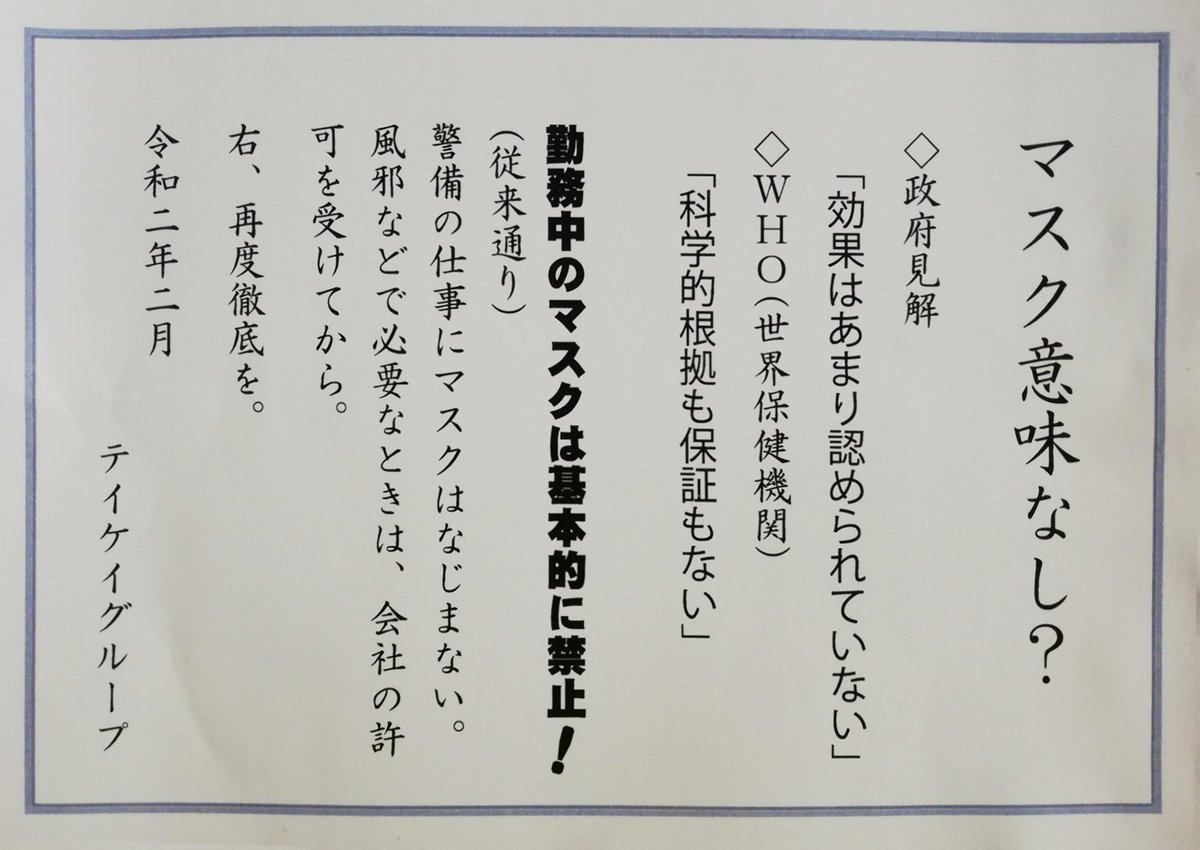 マスク意味なし?
◇政府見解
「効果はあまり認められていない」
◇WHO(世界保健機関)
「科学的根拠も保証もない」
勤務中のマスクは基本的に禁止!
(従来通り)
警備の仕事にマスクはなじまない。
風邪などで必要なときは、会社の許
可を受けてから。
右、再度徹底を。
令和二年二月
テイケイグループ